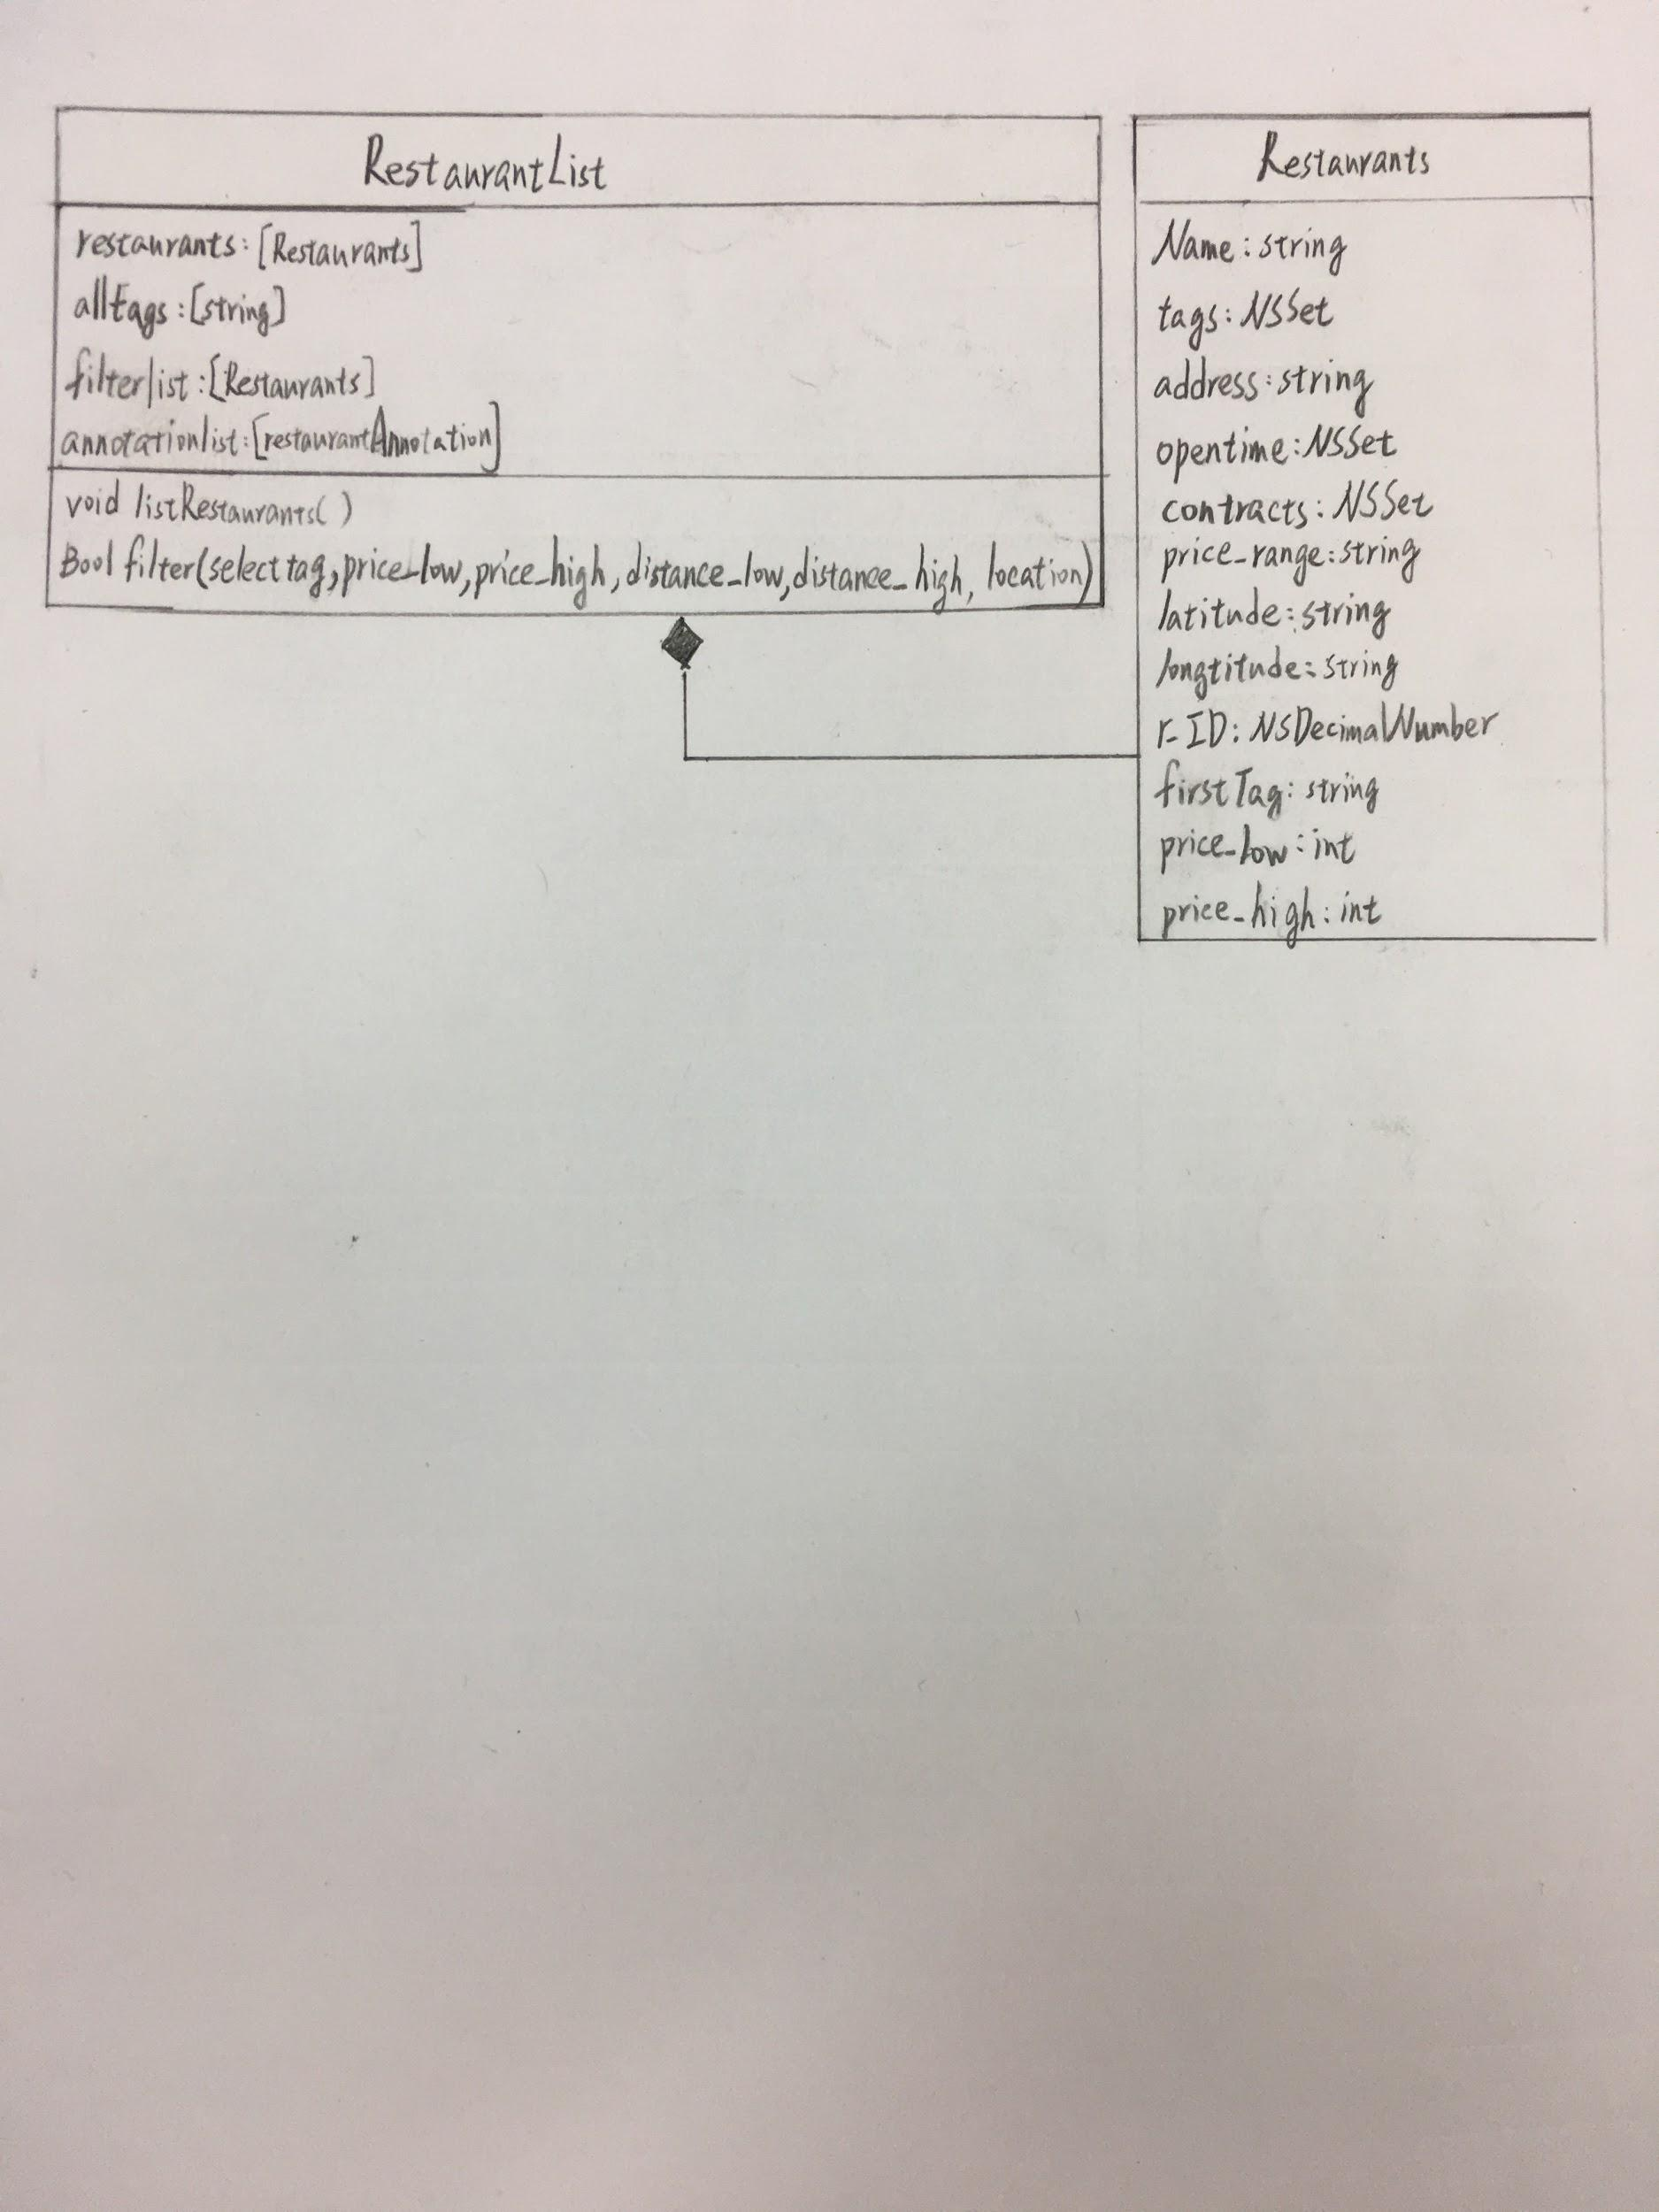 RestaurantList
restaurants: [Restaurants]
alltags: [string]
filterlist: [Restaurants]
annotationlist: [restaurantAnnotation]
void listRestaurants()
Bool filter(selecttag, price_low, price_high, distance_low, distance_high, location)
Restaurants
Name: string
tags: NSSet
address: string
opentime: NSSet
contracts: NSSet
price_range: string
latitude: string
longtitude: string
r_ID: NSDecimalNumber
firstTag: string
price_low: int
price_high: int